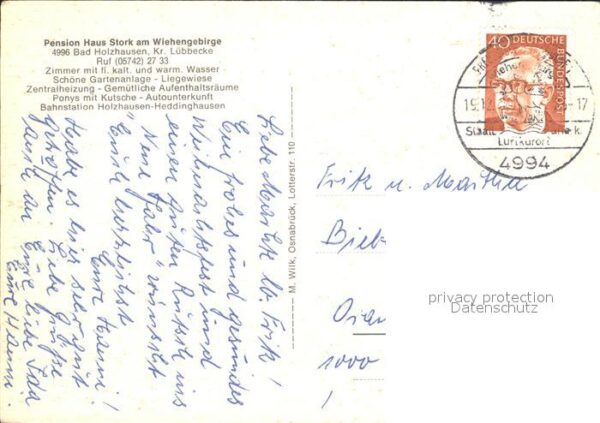 Pension Haus Stork am Wiehengebirge
4996 Bad Holzhausen, Kr. Lübbecke
Ruf (05742) 27 33
Zimmer mit fl. kalt. und warm. Wasser
Schöne Gartenanlage - Liegewiese
Zentralheizung - Gemütliche Aufenthaltsräume
Ponys mit Kutsche - Autounterkunft
Bahnstation Holzhausen-Heddinghausen
Liebe Martha lb. Fritz!
Ein frohes und gesundes
Weihnachtsfest und
einen guten Rutsch ins
"Neue Jahr" wünscht
Euch herzlichst
Eure Hanni!
Habe es hier sehr gut
getroffen. Liebe Grüße
auch an Eure liebe Ida
Eure Hanni.
M. Wilk, Osnabrück, Lotterstr. 110
40 DEUTSCHE BUNDESPOST
19.1
-17
Staatl.
Luftkurort
4994
Fritz u. Martha
Bieb
1000
privacy protection
Datenschutz